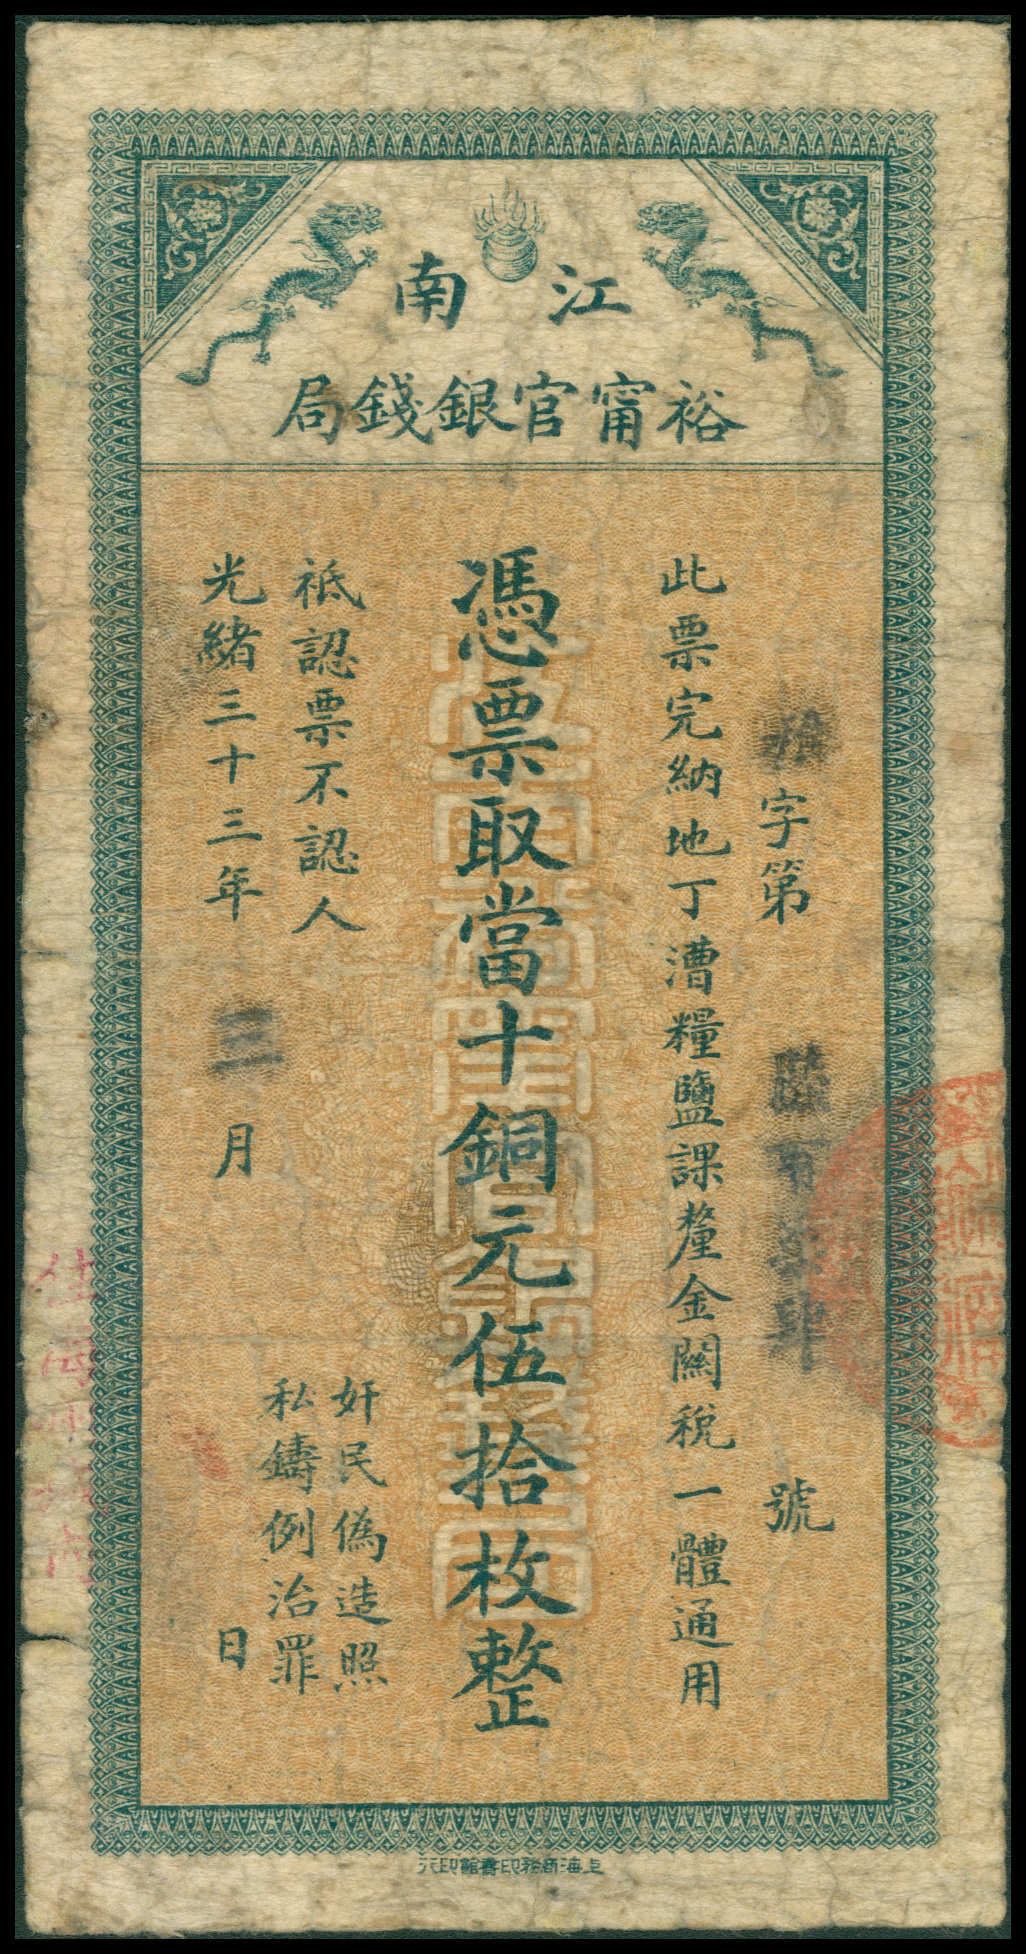 江南
裕甯官銀錢局
字第
號
此票完納地丁漕糧鹽課釐金關稅一體通用
憑票取當十銅元伍拾枚整
祗認票不認人
奸民偽造照
私鑄例治罪
光緒三十三年三月日
上海商務印書館印行